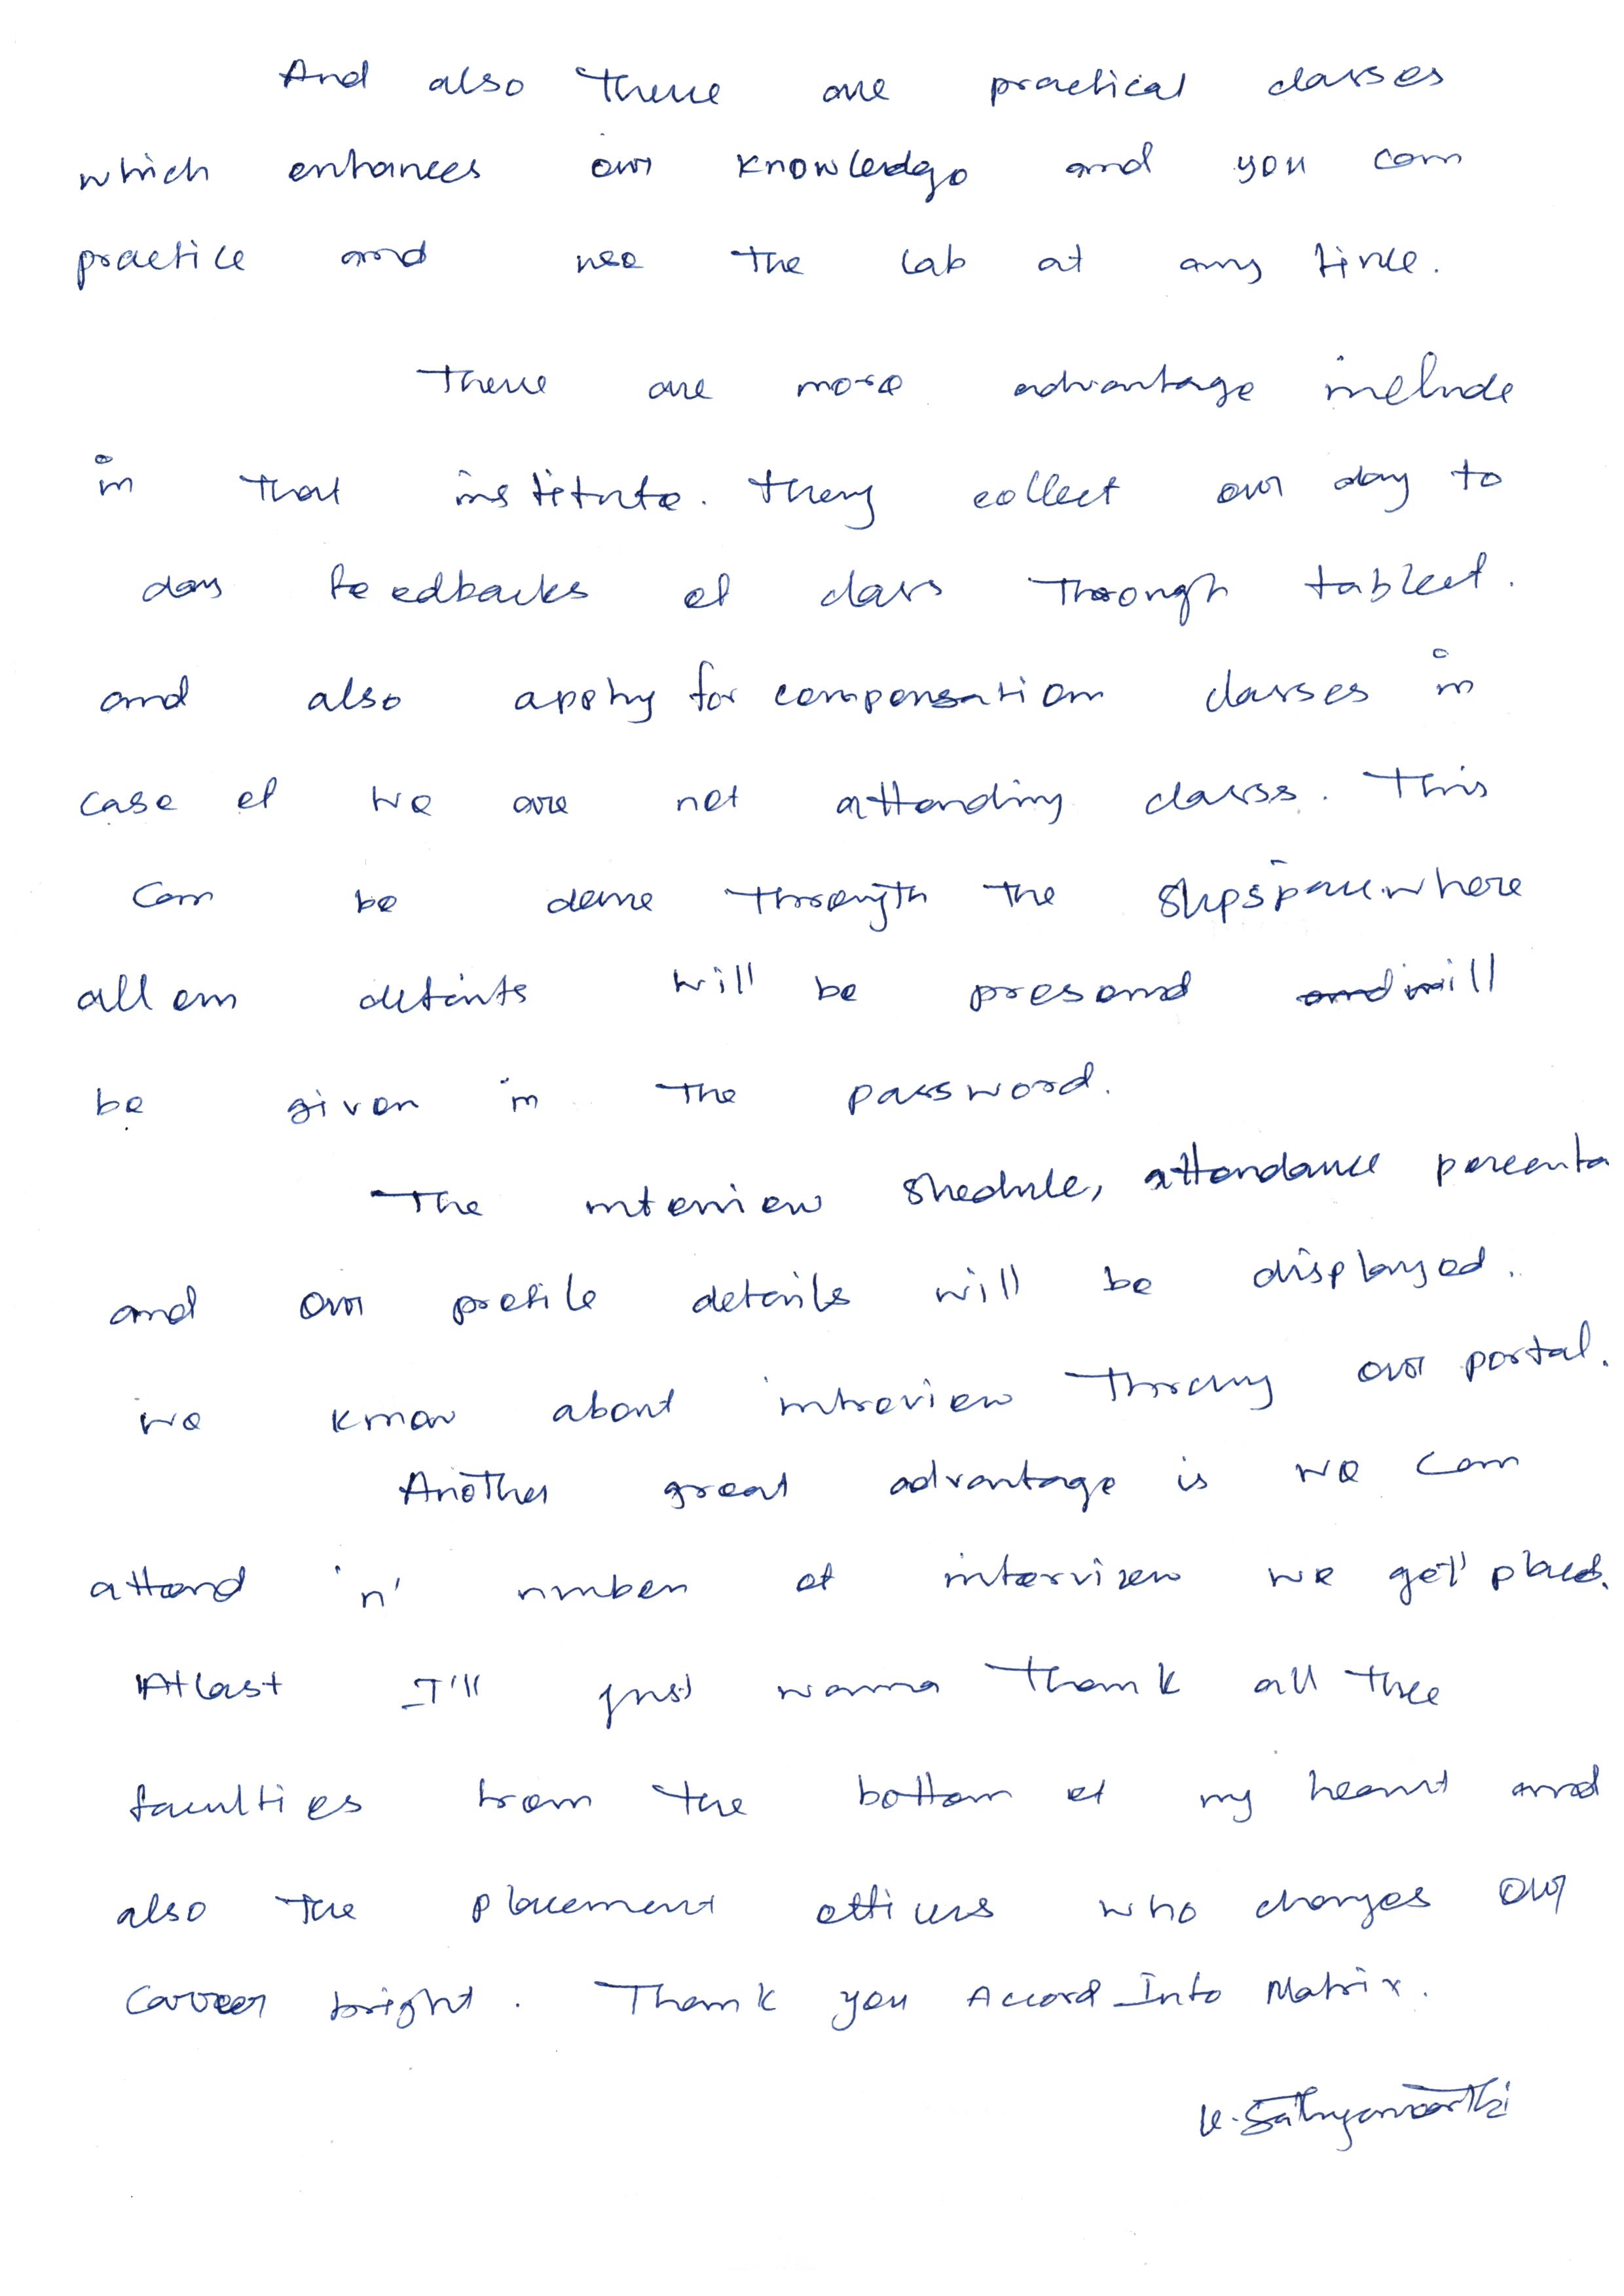 And also there are practical classes
which enhances our knowledge and you can
practice and use the lab at any time.
There are more advantage include
in that institute. they collect our day to
day feedbacks of class through tablet.
and also apply for compensation classes in
case of we are not attending classs. This
can be done through the where
all our details will be presend will
be given in the password.
The interview shedule, attendance percenta
and our profile details will be displayed.
we know about intreview our portal.
Another great advantage is we can
attend 'n' number of interview we get placed.
Atlast I'll just wanna thank all the
faculties from the bottom of my heart and
also the placement officers who changes our
career bright. Thank you Accord Info Matrix.